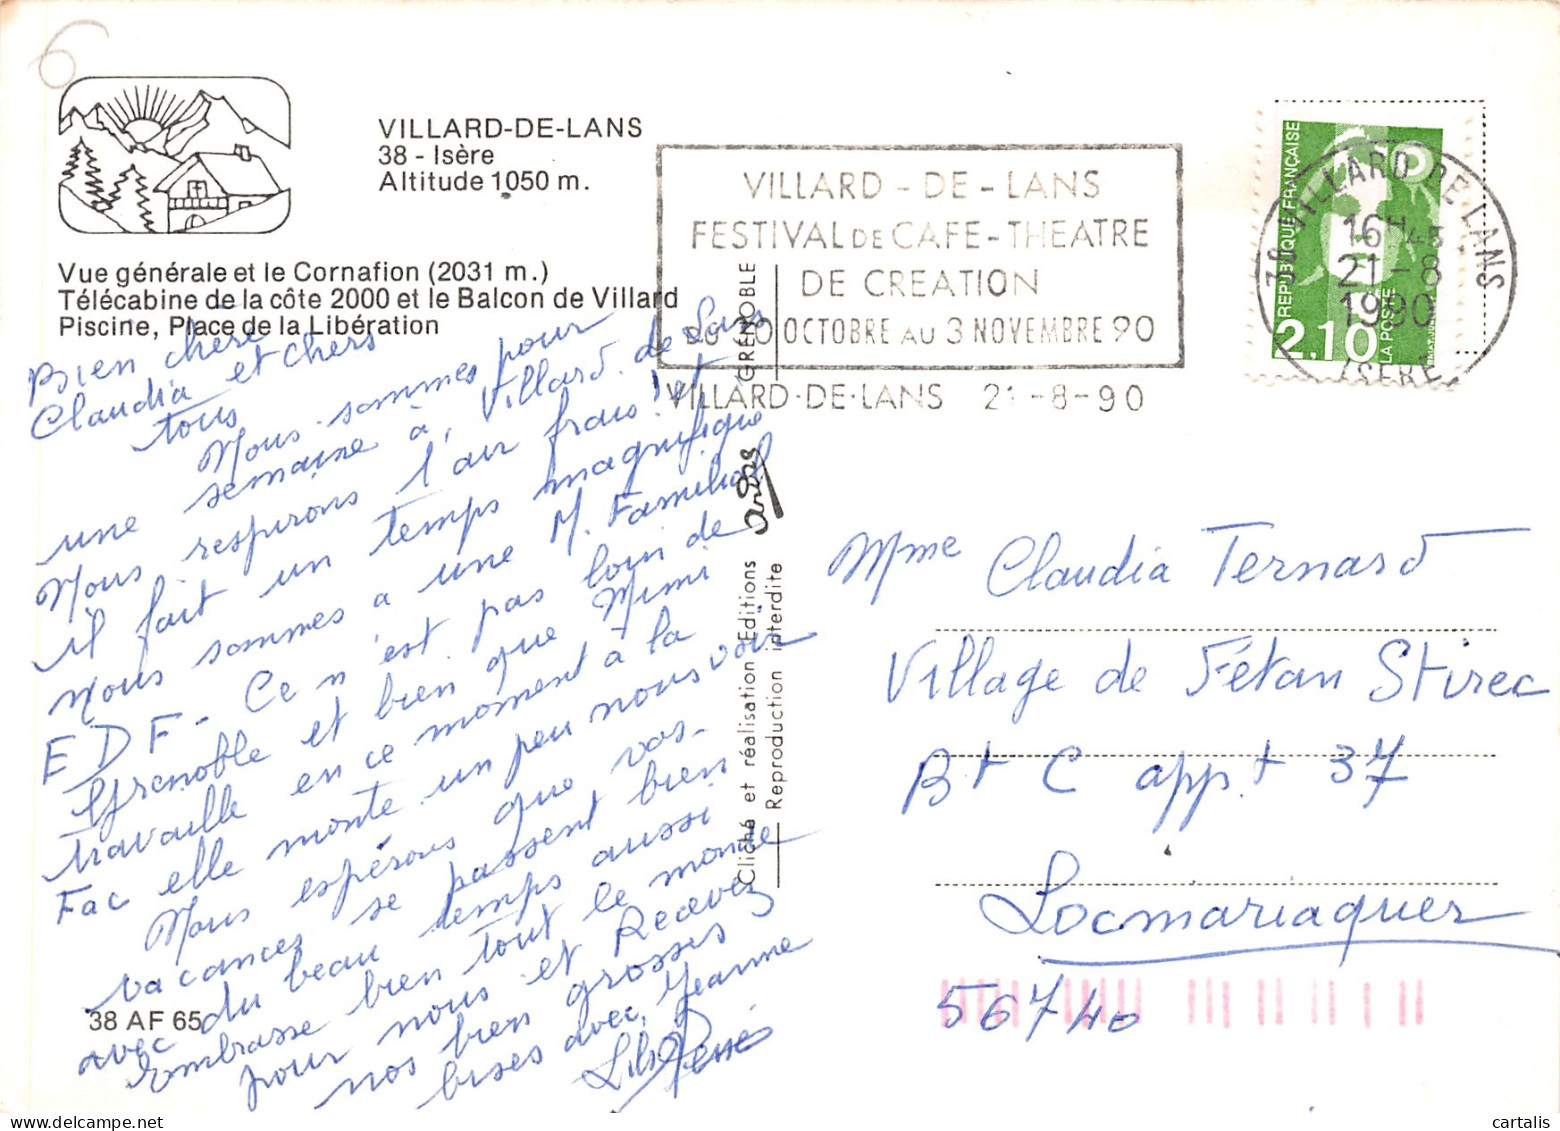 VILLARD-DE-LANS
38 - Isère
Altitude 1050 m.
Vue générale et le Cornafion (2031 m.)
Télécabine de la côte 2000 et le Balcon de Villard
Piscine, Place de la Libération
VILLARD - DE - LANS
FESTIVAL DE CAFE - THEATRE
DE CREATION
OCTOBRE AU 3 NOVEMBRE 90
VILLARD·DE·LANS 21-8-90
38 VILLARD DE LANS
16H45
21-8
1990
ISERE
REPUBLIQUE FRANÇAISE
2.10
LA POSTE
Bien chère
Claudia et chers
tous
Nous sommes pour
une semaine à Villard de Lans
Nous respirons l'air frais ! et
il fait un temps magnifique
nous sommes à une M. Familial
EDF - Ce n'est pas loin de
Grenoble et bien que Mimi
travaille en ce moment à la
Fac elle monte un peu nous voir
Nous espérons que vos-
vacances se passent bien
avec du beau temps aussi
Embrasse bien tout le monde
pour nous et Recevez
nos bien grosses
bises avec Jeanne
René
38 AF 65
GRENOBLE
Cliché et réalisation Editions
Reproduction interdite
Mme Claudia Ternard
Village de Fétan Stirec
Bt C appt 37
Locmariaquer
56740
cartalis
www.delcampe.net